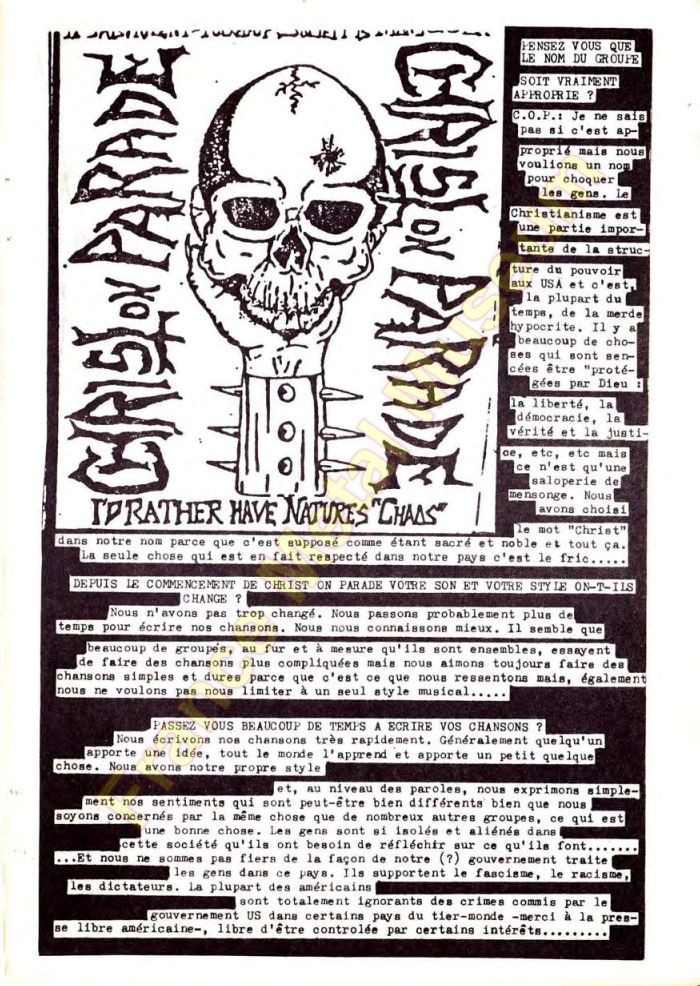 CHRIST ON PARADE
CHRIST ON PARADE
I'D RATHER HAVE NATURES "CHAOS"
PENSEZ VOUS QUE
LE NOM DU GROUPE
SOIT VRAIMENT
APPROPRIE ?
C.O.P.: Je ne sais
pas si c'est ap-
proprié mais nous
voulions un nom
pour choquer
les gens. Le
Christianisme est
une partie impor-
tante de la struc-
ture du pouvoir
aux USA et c'est,
la plupart du
temps, de la merde
hypocrite. Il y a
beaucoup de cho-
ses qui sont sen-
cées être "proté-
gées par Dieu :
la liberté, la
démocracie, la
vérité et la justi-
ce, etc, etc mais
ce n'est qu'une
saloperie de
mensonge. Nous
avons choisi
le mot "Christ"
dans notre nom parce que c'est supposé comme étant sacré et noble et tout ça.
La seule chose qui est en fait respecté dans notre pays c'est le fric.....
DEPUIS LE COMMENCEMENT DE CHRIST ON PARADE VOTRE SON ET VOTRE STYLE ON-T-ILS
CHANGE ?
Nous n'avons pas trop changé. Nous passons probablement plus de
temps pour écrire nos chansons. Nous nous connaissons mieux. Il semble que
beaucoup de groupes, au fur et à mesure qu'ils sont ensembles, essayent
de faire des chansons plus compliquées mais nous aimons toujours faire des
chansons simples et dures parce que c'est ce que nous ressentons mais, également
nous ne voulons pas nous limiter à un seul style musical.....
PASSEZ VOUS BEAUCOUP DE TEMPS A ECRIRE VOS CHANSONS ?
Nous écrivons nos chansons très rapidement. Généralement quelqu'un
apporte une idée, tout le monde l'apprend et apporte un petit quelque
chose. Nous avons notre propre style
et, au niveau des paroles, nous exprimons simple-
ment nos sentiments qui sont peut-être bien différents bien que nous
soyons concernés par la même chose que de nombreux autres groupes, ce qui est
une bonne chose. Les gens sont si isolés et aliénés dans
cette société qu'ils ont besoin de réfléchir sur ce qu'ils font.......
...Et nous ne sommes pas fiers de la façon de notre (?) gouvernement traite
les gens dans ce pays. Ils supportent le fascisme, le racisme,
les dictateurs. La plupart des américains
sont totalement ignorants des crimes commis par le
gouvernement US dans certains pays du tier-monde -merci à la pres-
se libre américaine-, libre d'être controlée par certains intérêts.........
France Metal Museum